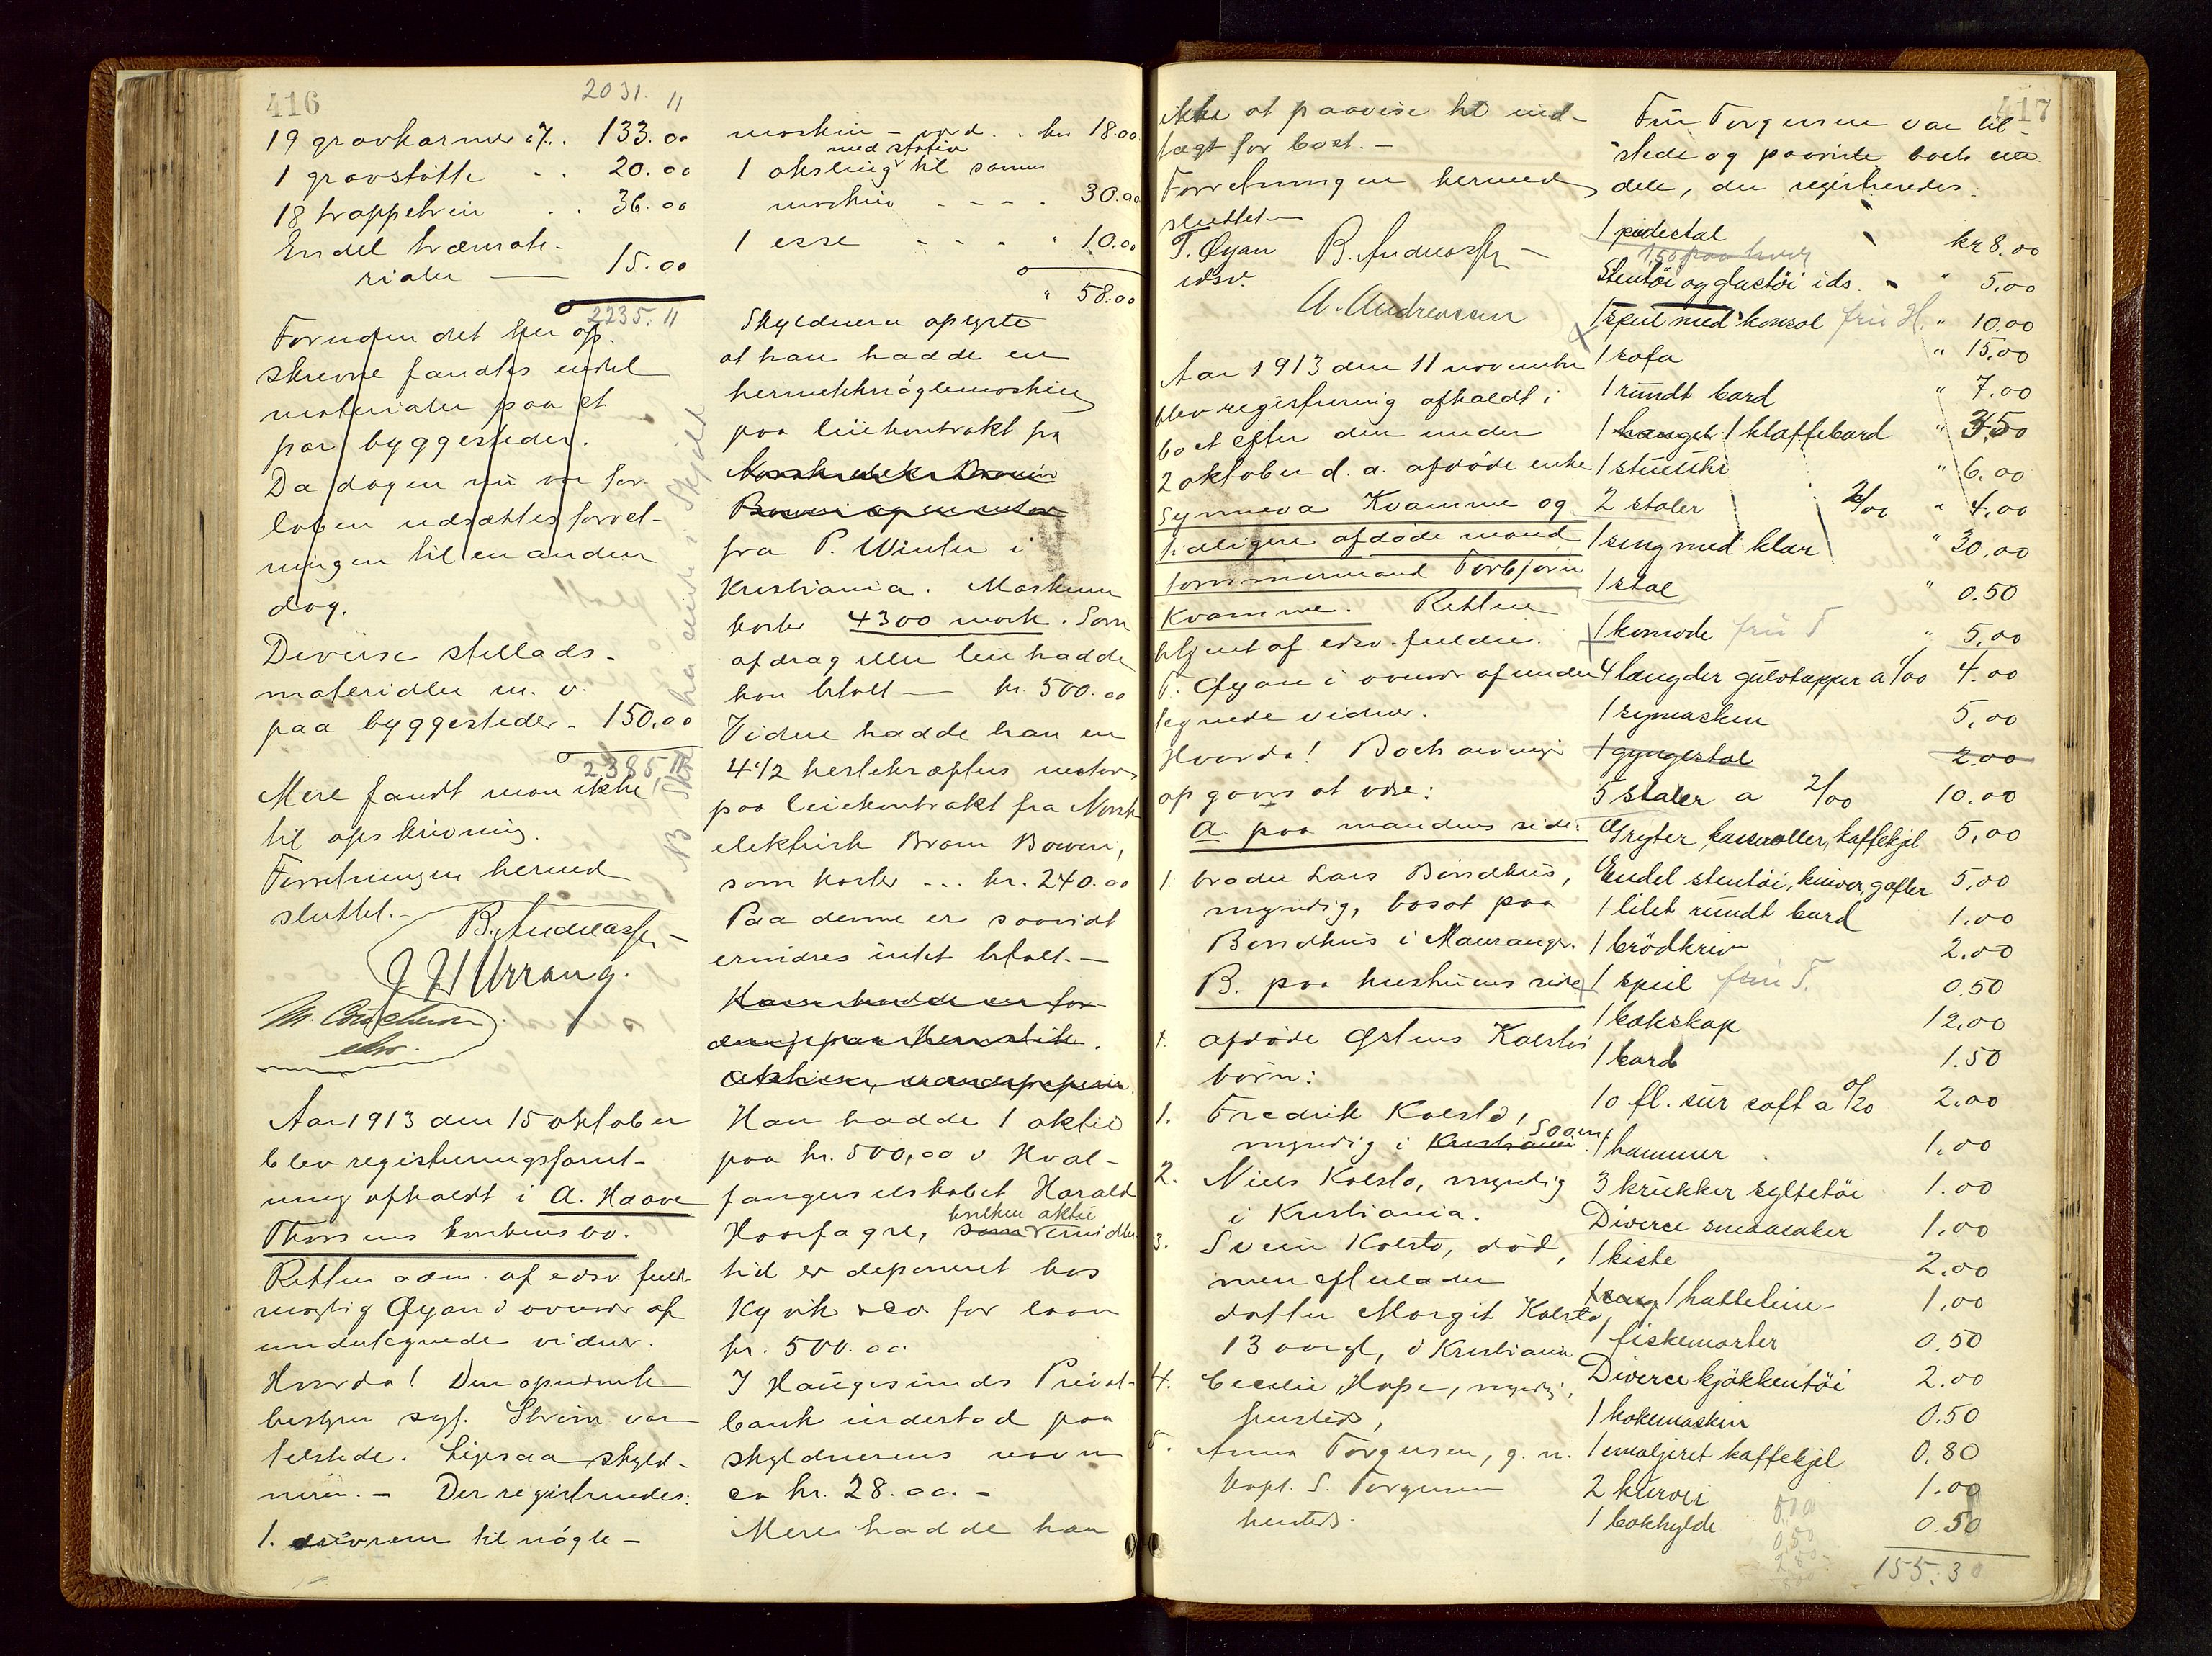 416
2031. 11
19 gravkarmer a 7.. 133.00
1 gravstøtte . . 20.00
18 trappetrin . . 36.00
Endel træmate-
rialer — 15.00
2235.11
Foruden det her op-
skrevne fandtes endel
materialer paa et
par byggesteder.
Da dagen nu var for-
løben udsættes forret-
ningen til en anden
dag.
Diverse stillads-
materialer m. v.
paa byggesteder - 150.00
2385,11
Mere fandt man ikke
til opskrivning.
Forretningen hermed
sluttet.
B. Andreassen
J H Urrang.
edsv.
Aar 1913 den 15 oktober
blev registreringsforret-
ning afholdt i A. Haave
Thorsens konkursbo.
Retten adm. af edsv. fuld-
mægtig Øyan i overvær af
undertegnede vidner.
Hvorda! Den opnævnte
bestyrer sagf. Strøm var
tilstede. Ligesaa skyld-
neren. - Der registreredes:
1. drivrem til nögle-
maskin - værd . . kr. 18.00
med stativ
1 aksling til samme
maskin - - - . 30.00
1 esse - - - " 10.00
" 58.00
Skyldneren oplyste
at han hadde en
hermetiknöglemaskin
paa leiekontrakt fra
fra P. Winter i
Kristiania. Maskinen
koster 4300 mark. Som
afdrag eller leie hadde
han betalt — kr. 500.00
Videre hadde han en
4 1/2 hestekræfters motor
paa leiekontrakt fra Norsk
elektrisk Brown Boweri,
som koster ... kr. 240.00
Paa denne er saavidt
erindres intet betalt. —
Han hadde 1 aktie
paa kr. 500,00 i Hval-
fangerselskabet Harald
hvilken aktie
Haarfagre, som for midler
tid er deponeret hos
Kyvik & Co for laan
kr. 500.00
I Haugesunds Privat-
bank indestod paa
skyldnerens navn
ca kr. 28.00. -
Mere hadde han
ikke at paavise til ind-
tægt for boet. -
Forretningen hermed
sluttet
T. Øyan B. Andreassen
edsv.
A. Andreassen
Aar 1913 den 11 november
blev registrering afholdt i
boet efter den under
2 oktober d. a. afdöde enke
Synneva Kvamme og
tidligere afdöde mand
tømmermand Torbjørn
Kvamme. Retten
betjent af edsv. fuldm.
T. Øyan i overvær af under-
tegnede vidner.
Hvorda! Boets arvinger
opgaves at være:
A. paa mandens side:
1. broder Lars Bondhus,
myndig, bosat paa
Bondhus i Mauranger.
B. paa hustruens side
1. afdöde Østens Kolstø's
börn:
1. Fredrik Kolstø,
myndig i Kristiania.
2. Niels Kolstø, myndig
i Kristiania.
3. Svein Kolstø, död,
men efterlader
datter Margit Kolstø,
13 aar gl, i Kristiania
4. Cecilie Hope, myndig,
hersteds,
5. Anna Torgersen, g. m.
kapt. S. Torgersen
hersteds.
417
Fru Torgersen var til-
stede og paaviste boets ein-
dele, der registreredes:
1 piedestal kr 8.00
Stentöi og glastöi i ds. " 5.00
1 speil med konsol fru H. " 10.00
1 sofa " 15.00
1 rundt bord " 7.00
1 klaffebord " 3.50
1 stueuhr " 6.00
2 stoler 2/00 " 4.00
1 seng med klær " 30.00
1 stol " 0.50
1 komode fru T " 5.00
4 længder gulvtæpper a 1/00 4.00
1 symaskin 5.00
1 gyngestol 2.00
5 stoler a 2/00 10.00
Gryter, kasseroller, kaffekjel 5.00
Endel stentöi, kniver, gafler 5.00
1 litet rundt bord 1.00
1 brödkriv 2.00
1 speil fru T. 0.50
1 bokskap 12.00
1 bord 1.50
10 fl. sur saft a 0/20 2.00
1 hammer . 1.00
3 krukker syltetöi 1.00
Diverce smaasaker 1.00
1 kiste 2.00
1 fiskemorter 0.50
Diverce kjökkentöi 2.00
1 kokemaskin 0.50
1 emaljeret kaffekjel 0.80
2 kurver 1.00
1 bokhylde 0.50
155.30